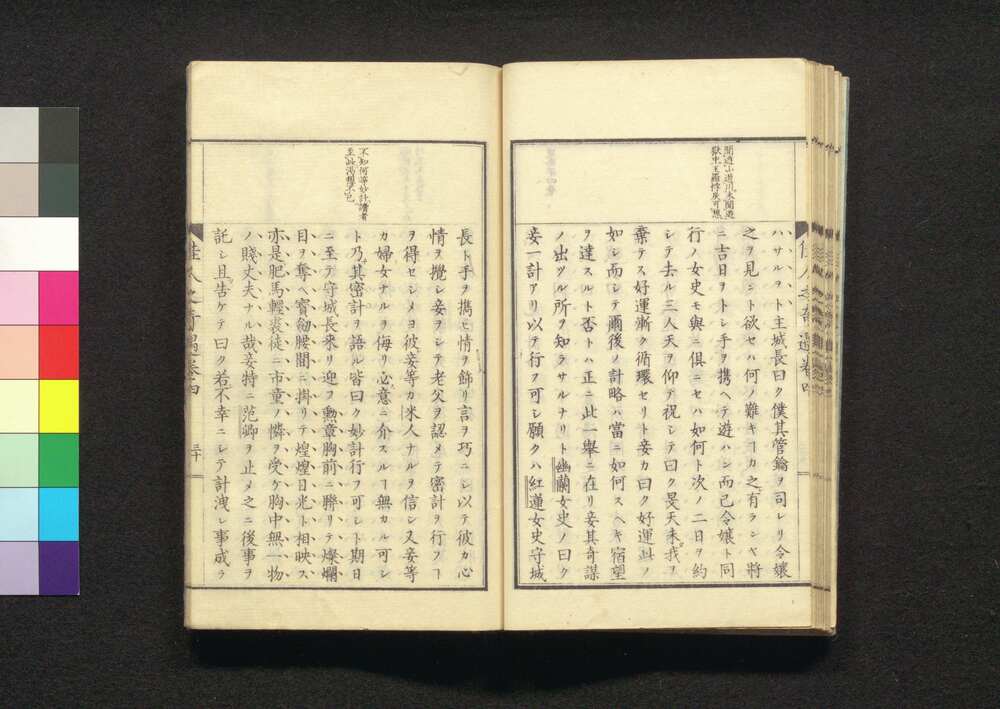 聞遊小遊川未聞遊
獄中
ハサルヲト主城長曰ク僕其管鑰ヲ司レリ令孃
之ヲ見ント欲セハ何ノ難キヿカ之有ランヤ將
ニ吉日ヲトシ手ヲ携ヘテ遊ハン而已令孃ト同
行ノ女史モ與ニ俱ニセハ如何ト次ノ二日ヲ約
シテ去ル三人天ヲ仰テ祝シテ曰ク旻天未我ヲ
棄テス好運漸ク循環セリト妾カ曰ク好運此ノ
如シ而シテ爾後ノ計略ハ當ニ如何スヘキ宿望
ヲ達スルト否トハ正ニ此一擧ニ在リ妾其奇謀
ノ出ツル所ヲ知ラサルナリト幽蘭女史ノ曰ク
妾一計アリ以テ行フ可シ願クハ紅蓮女史守城
佳人之奇遇卷四
不知何等妙計讀者
至此渴想不已
長ト手ヲ携ヒ情ヲ飾リ言ヲ巧ニシ以テ彼カ心
情ヲ攪シ妾ヲシテ老父ヲ認メテ密計ヲ行フヿ
ヲ得セシメヨ彼妾等カ米人ナルヲ信シ又妾等
カ婦女ナルヲ侮リ心意ニ介スルヿ無カル可シ
ト乃其密計ヲ語ル皆曰ク妙計行フ可シト期日
ニ至テ守城長來リ迎フ勳章胸前ニ聯リテ燦爛
目ヲ奪ヘ寶劒腰間ニ掛リテ煌煌日光ト相映ス
亦是肥馬輕裘徒ニ市童ノ憐ヲ受ケ胸中無一物
ノ賤丈夫ナル哉妾特ニ范卿ヲ止メ之ニ後事ヲ
託シ且告ケテ曰ク若不幸ニシテ計洩レ事成ラ
佳人之奇遇卷四
三十